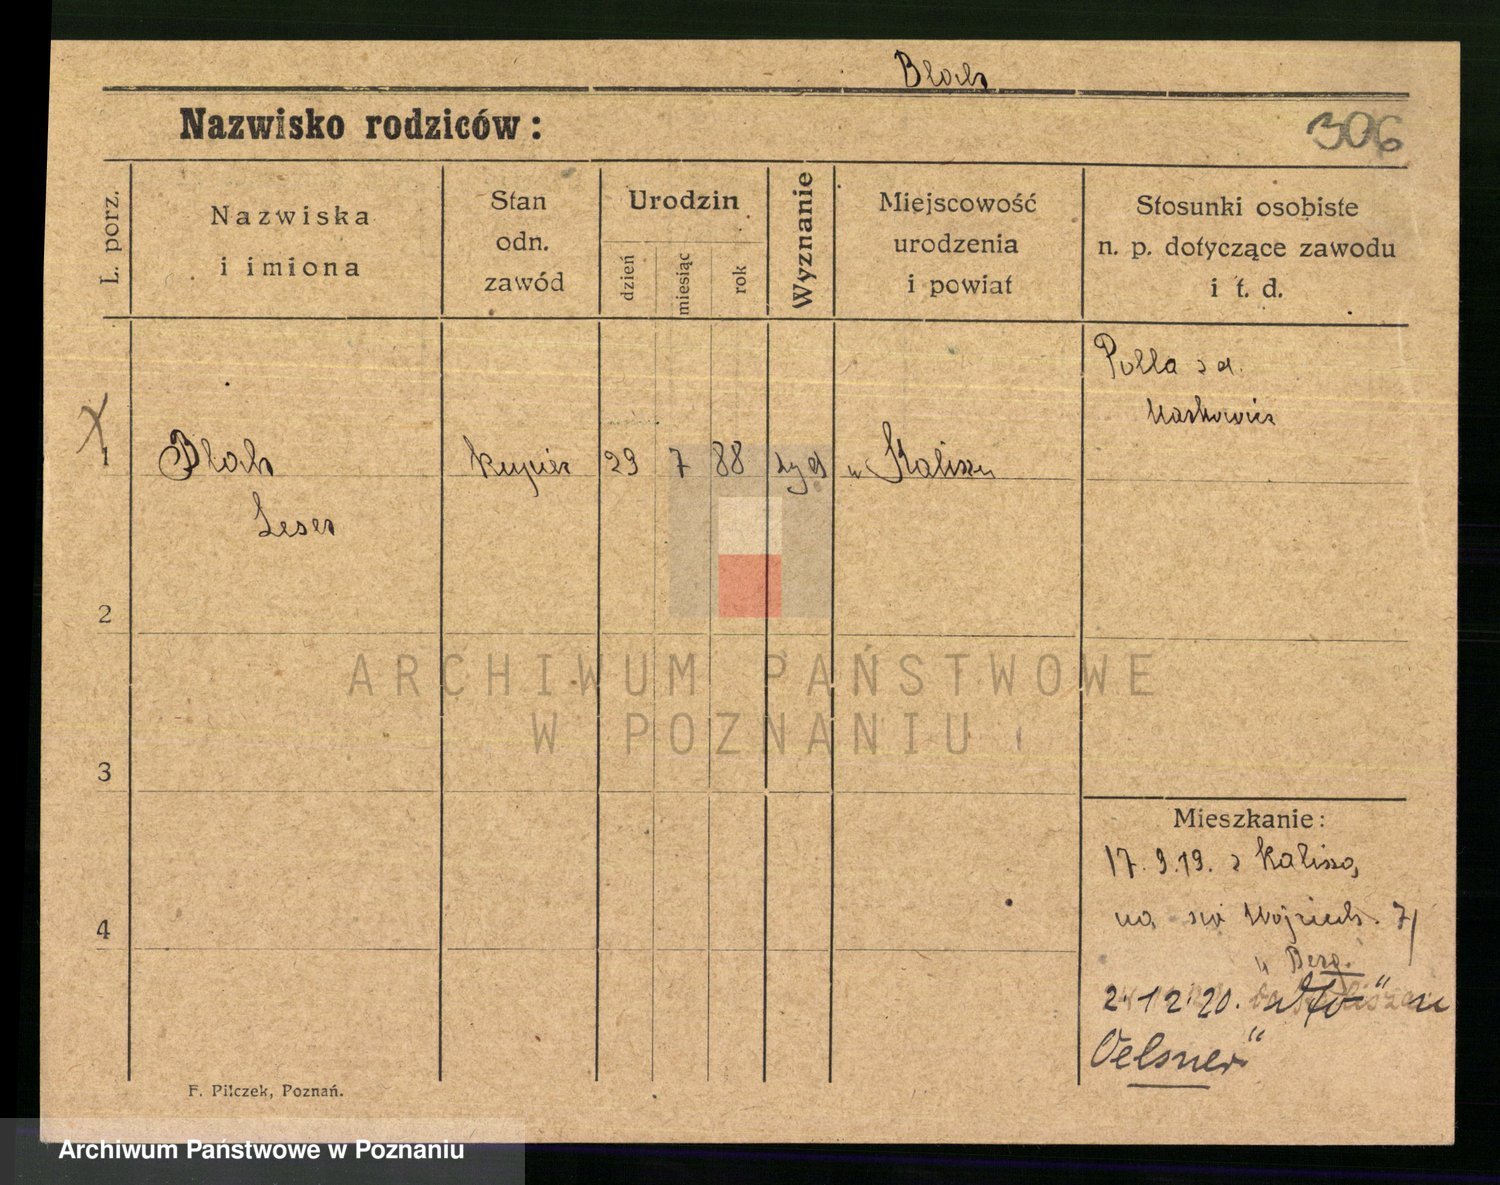 Blach
Nazwisko rodziców:
306
L. porz.
Nazwiska
i imiona
Stan
odn.
zawód
Urodzin
dzień
miesiąc
rok
Wyznanie
Miejscowość
urodzenia
i powiat
Stosunki osobiste
n. p. dotyczące zawodu
i t. d.
Polla z d.
X
1 Blach kupiec 29 7 88 żyd w Kaliszu
Leser
2
3
4
Mieszkanie:
17.9.19. z Kalisza
na św Wojciech. 7/
u Berg.
2.12.20. u
Oelsner"
F. Pilczek, Poznań.
ARCHIWUM PAŃSTWOWE
W POZNANIU
Archiwum Państwowe w Poznaniu